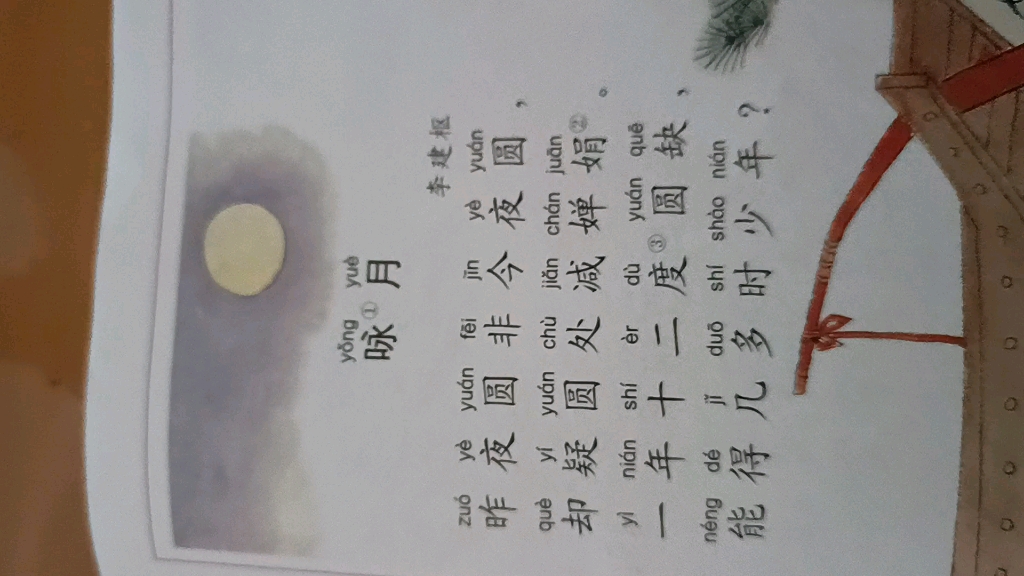 yǒng yuè
咏①月
李建枢
zuó yè yuán fēi jīn yè yuán
昨夜圆非今夜圆，
què yí yuán chù jiǎn chán juān
却疑圆处减婵娟②。
yì nián shí èr dù yuán quē
一年十二度③圆缺，
néng dé jǐ duō shí shào nián
能得几多时少年？